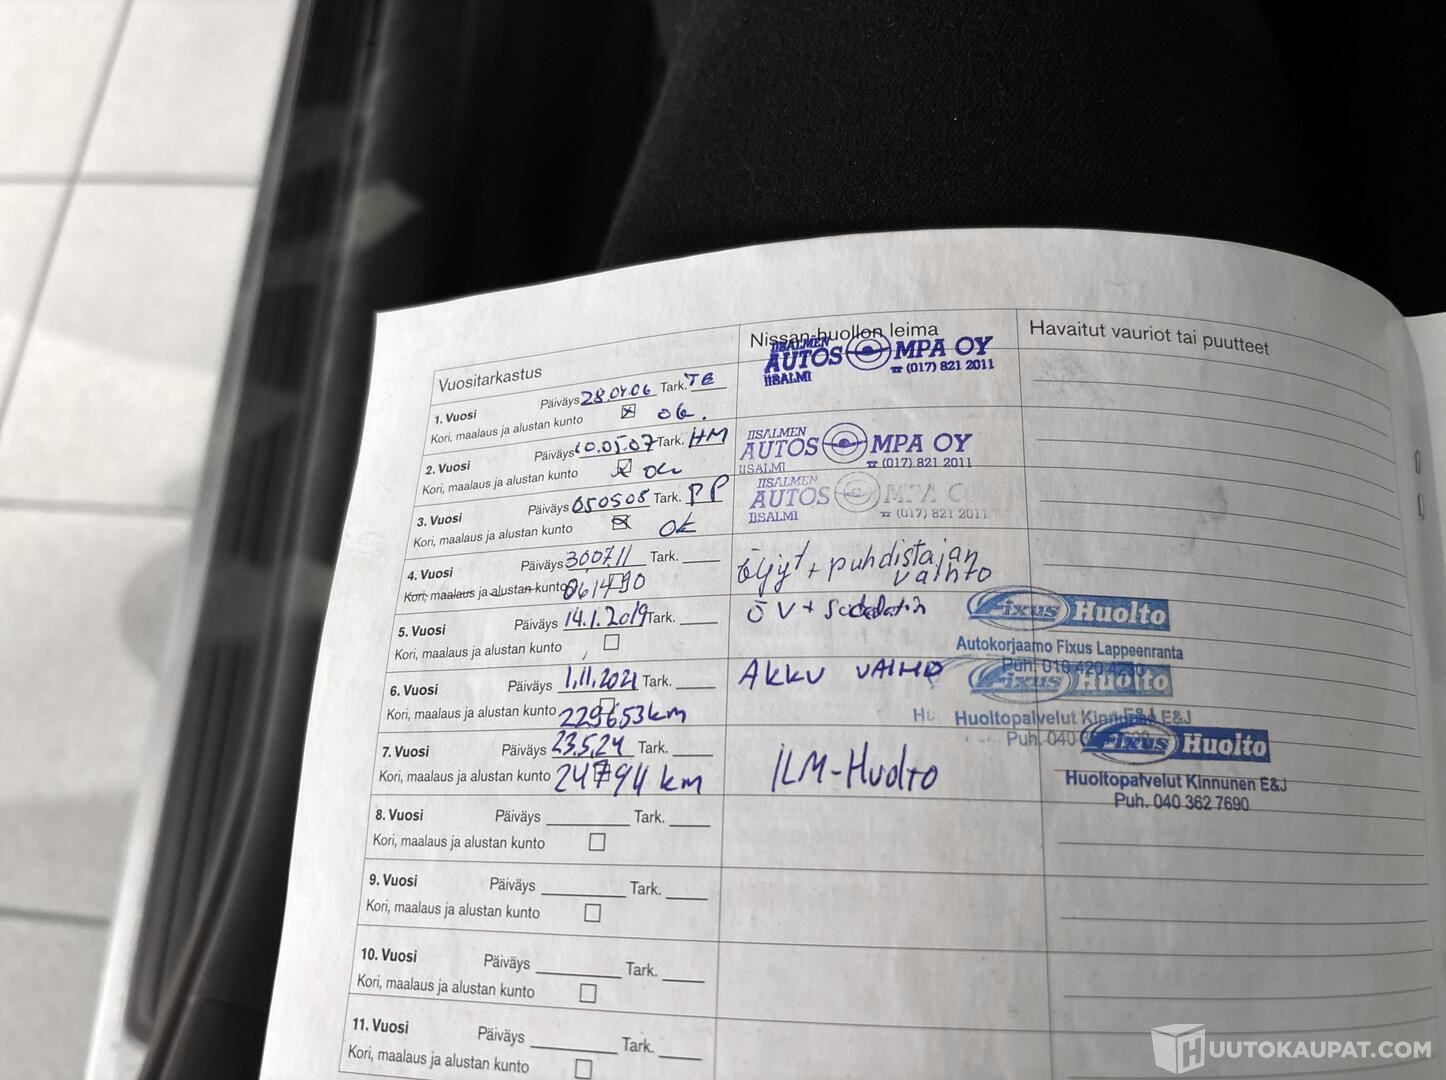 Vuositarkastus
Nissan-huollon leima
Havaitut vauriot tai puutteet
1. Vuosi Päiväys 28.04.06 Tark. TE
Kori, maalaus ja alustan kunto ok.
IISALMEN
AUTOSOMPA OY
IISALMI ☎ (017) 821 2011
2. Vuosi Päiväys 10.05.07 Tark. HM
Kori, maalaus ja alustan kunto ok
IISALMEN
AUTOSOMPA OY
IISALMI ☎ (017) 821 2011
3. Vuosi Päiväys 050508 Tark. PP
Kori, maalaus ja alustan kunto OK
IISALMEN
AUTOSOMPA OY
IISALMI ☎ (017) 821 2011
4. Vuosi Päiväys 300711 Tark.
Kori, maalaus ja alustan kunto
öljyt + puhdistajan
vaihto
5. Vuosi Päiväys 14.1.2019 Tark.
Kori, maalaus ja alustan kunto
ÖV +
Fixus Huolto
Autokorjaamo Fixus Lappeenranta
Puh. 010 420 4230
6. Vuosi Päiväys 1.11.2021 Tark.
Kori, maalaus ja alustan kunto 229653 km
AKKU VAIHTO
Fixus Huolto
Huoltopalvelut Kinnunen E&J
Puh. 040
7. Vuosi Päiväys 23.5.24 Tark.
Kori, maalaus ja alustan kunto 247941 km
ILM-Huolto
Fixus Huolto
Huoltopalvelut Kinnunen E&J
Puh. 040 362 7690
8. Vuosi Päiväys Tark.
Kori, maalaus ja alustan kunto
9. Vuosi Päiväys Tark.
Kori, maalaus ja alustan kunto
10. Vuosi Päiväys Tark.
Kori, maalaus ja alustan kunto
11. Vuosi Päiväys Tark.
Kori, maalaus ja alustan kunto
HUUTOKAUPAT.COM